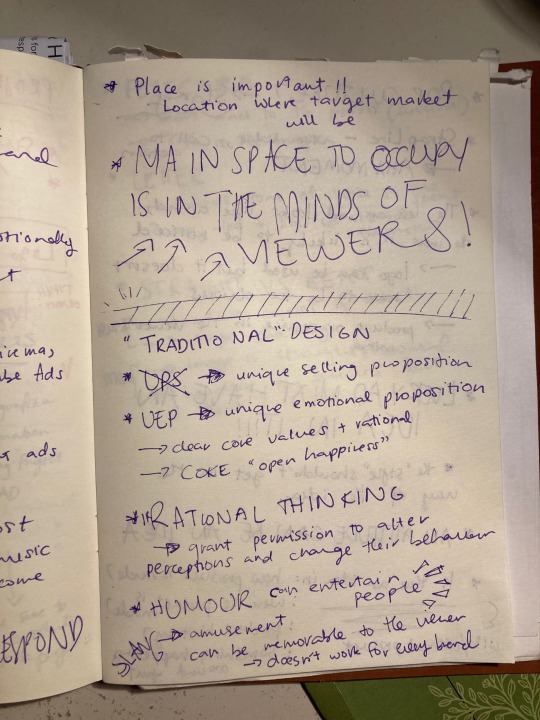 * Place is important!!
Location where target market
will be
* MAIN SPACE TO OCCUPY
IS IN THE MINDS OF
VIEWERS!
"TRADITIONAL" DESIGN
* UPS → unique selling proposition
* UEP → unique emotional proposition
→ clear core values + rational
→ COKE "open happiness"
* IRRATIONAL THINKING
→ grant permission to alter
perceptions and change their behaviour
* HUMOUR can entertain
people
SLANG → amusement
can be memorable to the viewer
→ doesn't work for every brand
and
t
be Ads
ads
ost
music
come
ESPOND